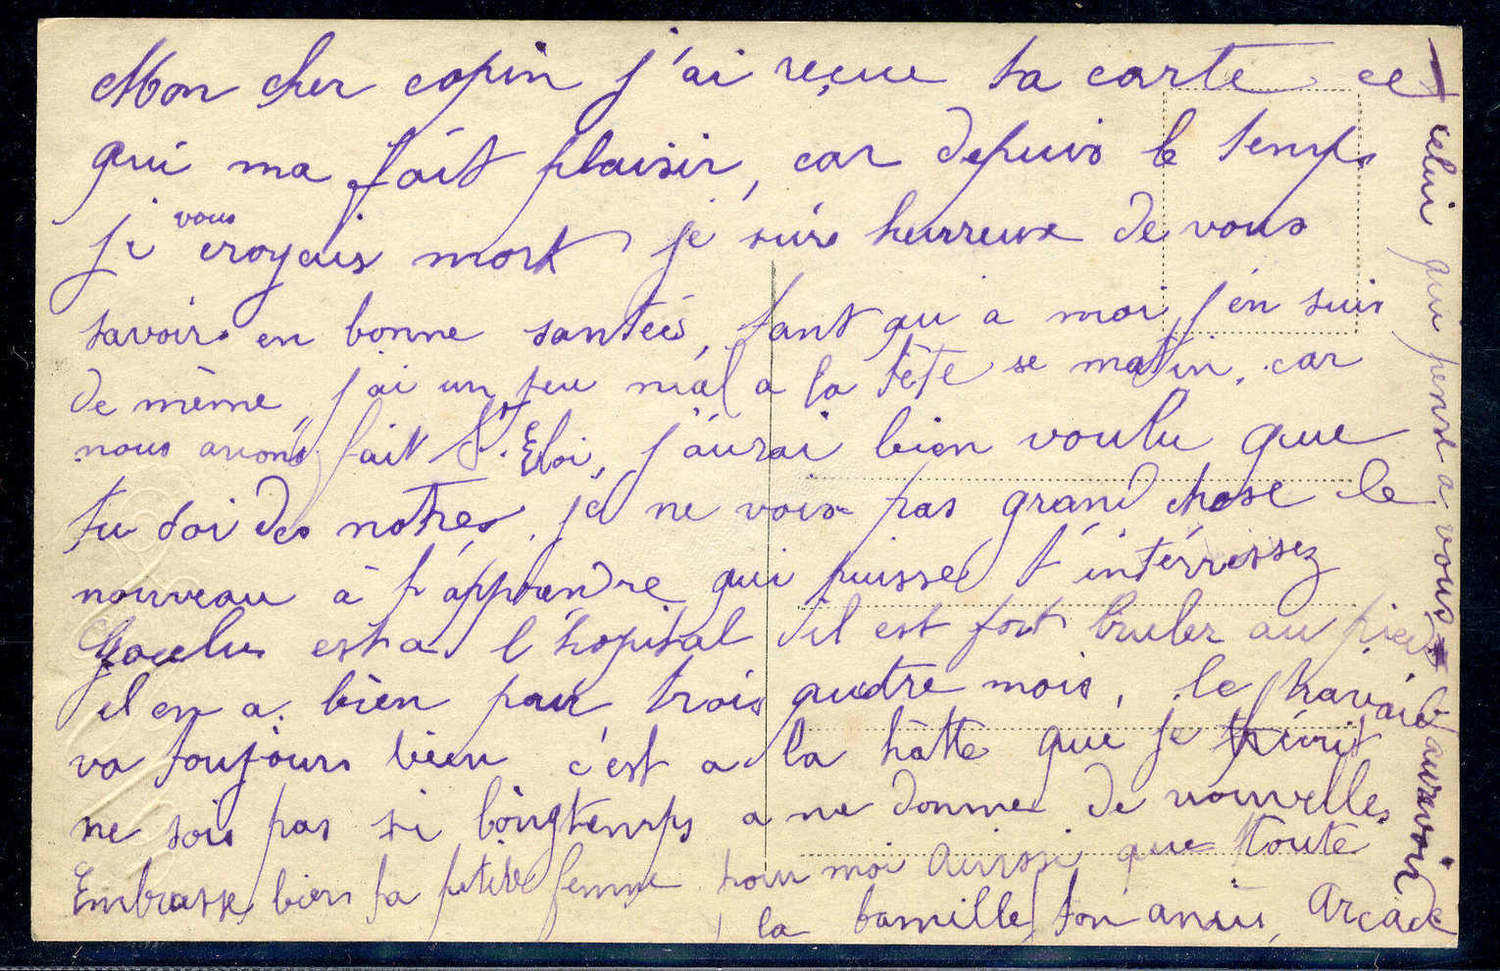 Mon cher copin j'ai reçue ta carte ce
qui ma fait plaisir, car depuis le temps
je vous croyais mort je suis heureuse de vous
savoir en bonne santées, tant qu a moi j'en suis
de même, j'ai un peu mal a la tête se matin, car
nous avons fait St. Eloi, j'aurai bien voulu que
tu soi des notres, je ne vois pas grand chose de
nouveau à t'apprendre qui puisse t'intérressez
est a l'hopital il est fort bruler au pieds
il en a bien pour trois quatre mois, le travail
va toujours bien c'est a la hâtte que je t'écrit
ne sois pas si longtemps a ne donner de nouvelles
Embrasse bien ta petite femme pour moi aussi que toute
la famille, ton ami, Arcade
celui qui pense a vous
aurevoir